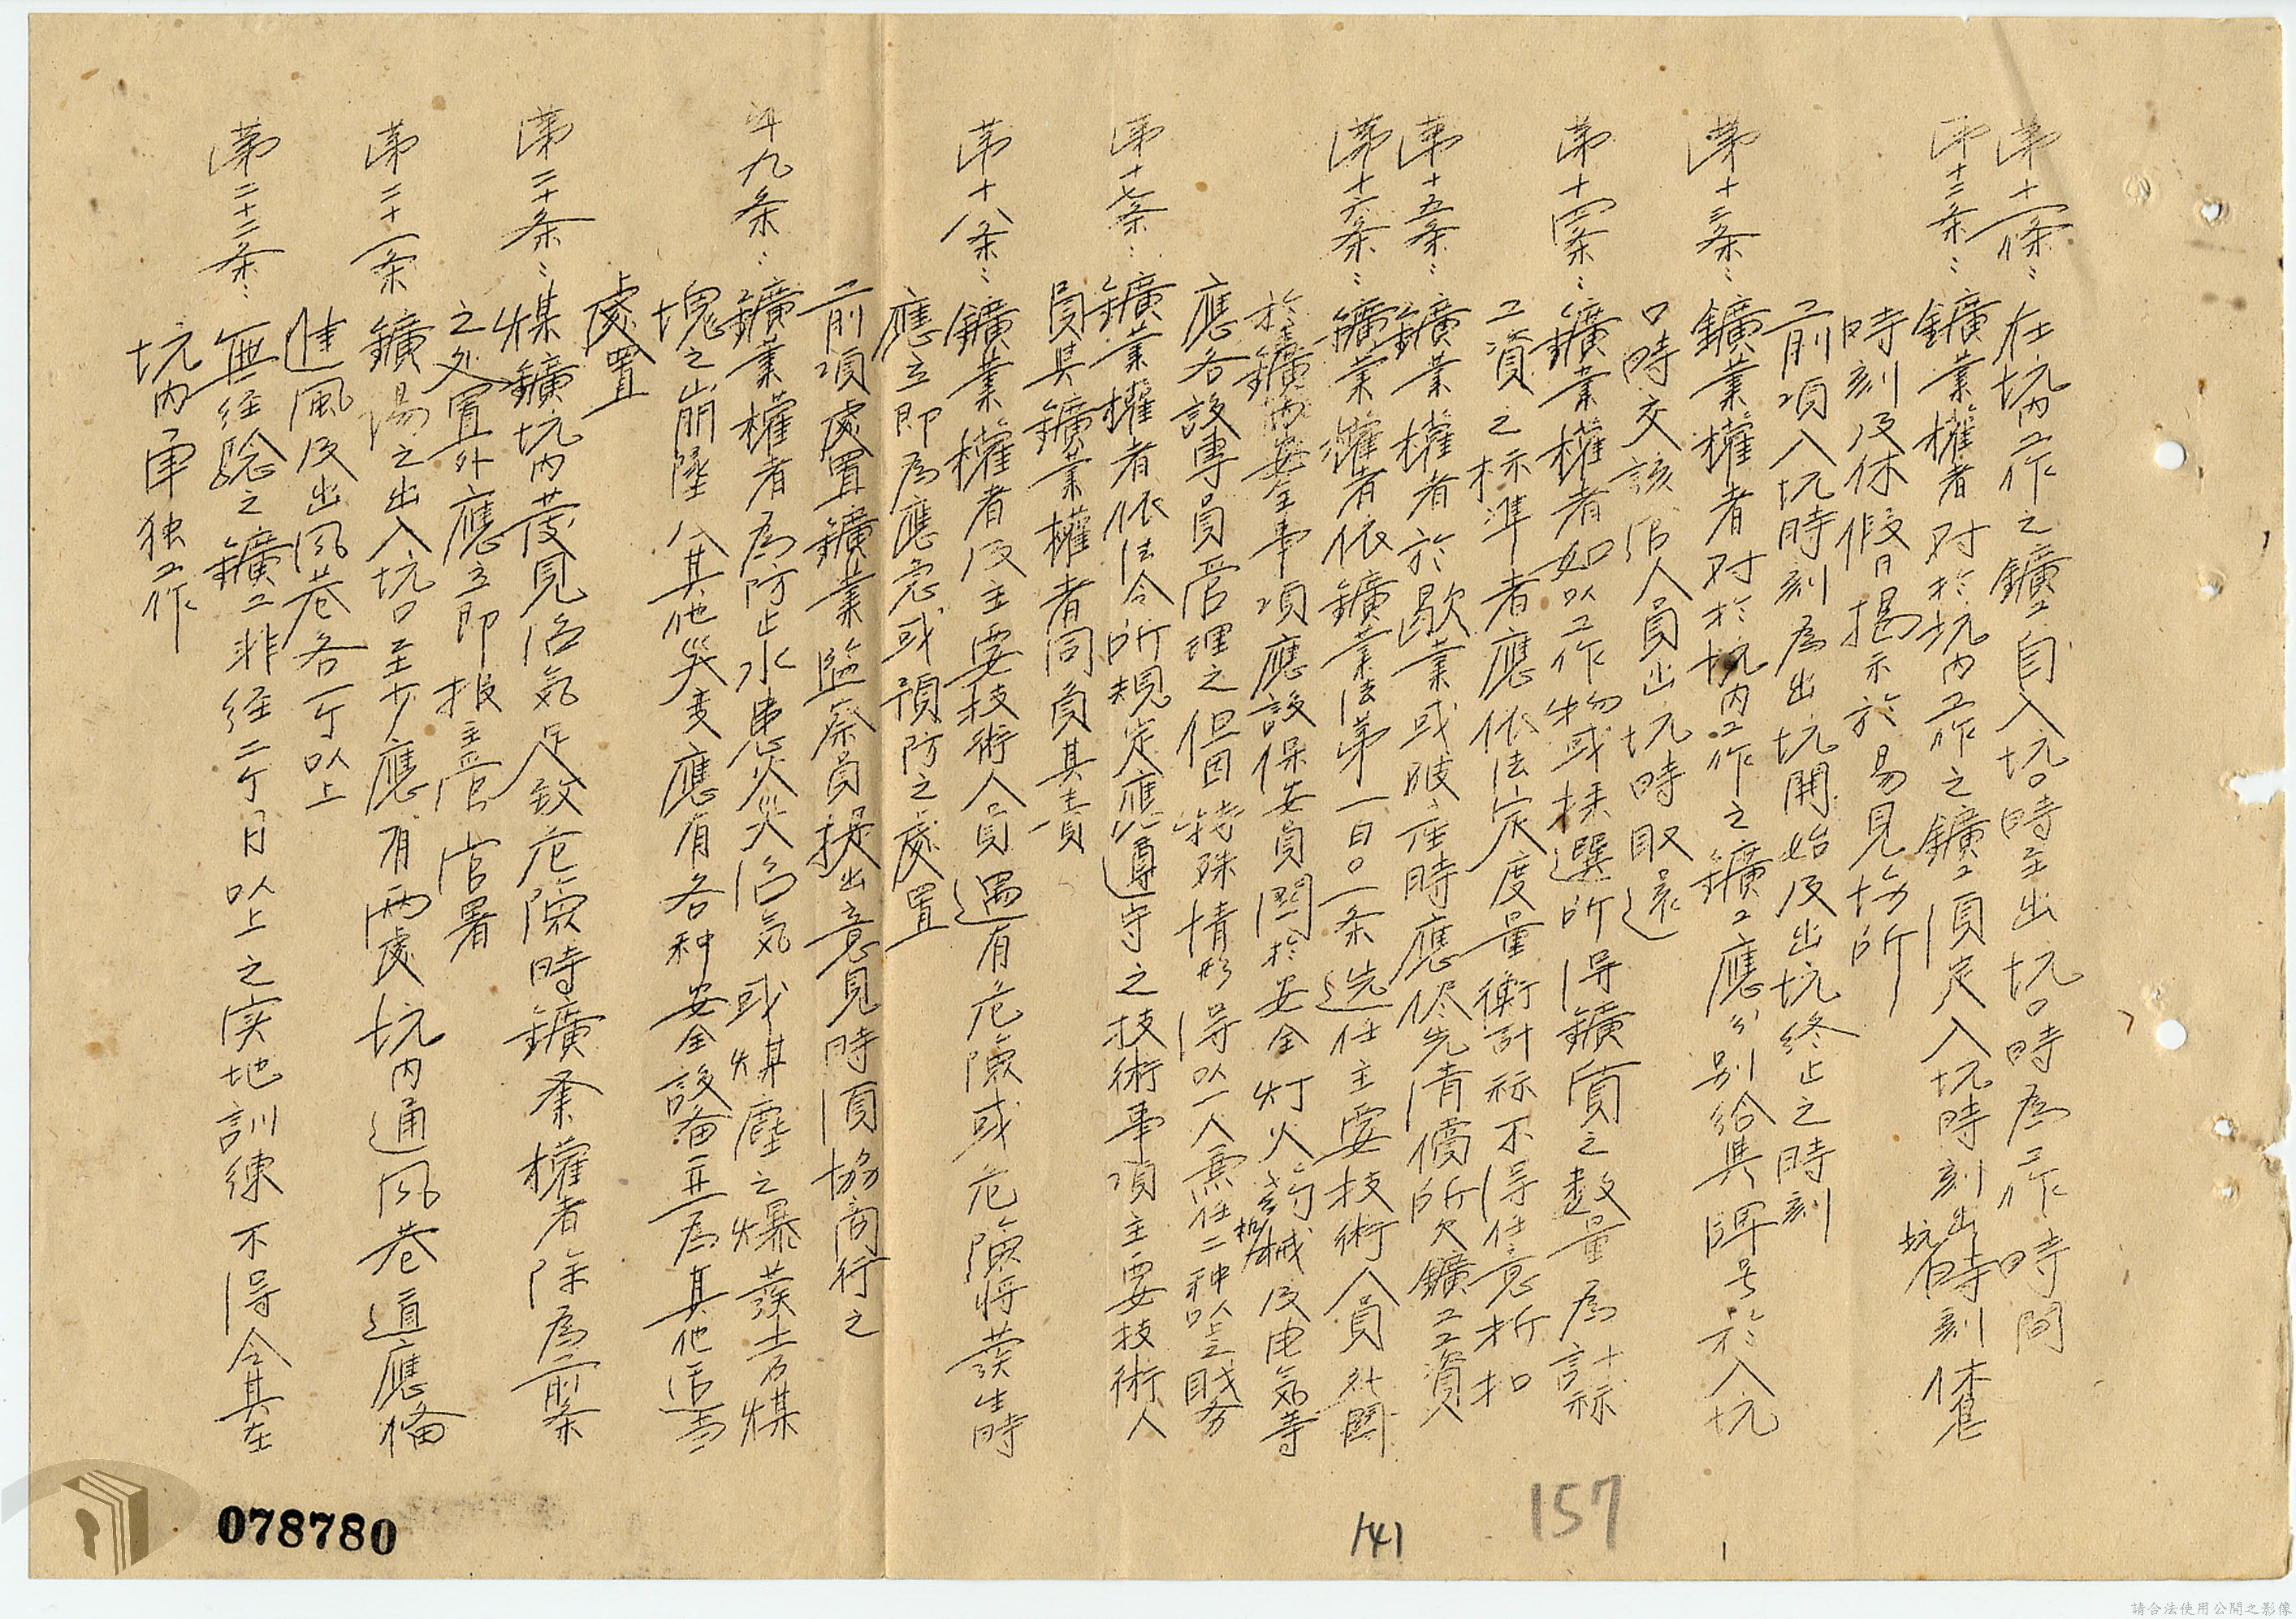 第十一條：在坑內工作之鑛工自入坑口時至出坑口時為工作時間
第十二条：鑛業權者对於坑内工作之鑛工須定入坑時刻出坑時刻休息
時刻及休假日揭示於易見場所
前項入坑時刻為出坑開始及出坑終止之時刻
第十三条：鑛業權者对於坑内工作之鑛工應分别給與牌号於入坑
口時交該管人員出坑時取還
第十四条：鑛業權者如以工作物或採選所得鑛質之数量為計祘
工資之标準者應依法定度量衡計祘不得任意折扣
第十五条：鑛業權者於歇業或破產時應侭先清償所欠鑛工工資
第十六条：鑛業權者依鑛業法第一百〇一条选任主要技術人員外関
於鑛内安全事項應設保安員関於安全灯火药机械及电気等
應各設專員管理之但因特殊情形得以一人兼任二种以上之職务
第十七条：鑛業權者依法令所規定應遵守之技術事項主要技術人
員與鑛業權者同負其責
第十八条：鑛業權者及主要技術人員遇有危險或危險将發生時
應立即為應急或預防之處置
前項處置鑛業監察員提出意見時須協商行之
第十九条：鑛業權者為防止水患火災沼気或煤塵之爆發土石煤
塊之崩墜及其他災变應有各种安全設备并為其他适當
處置
第二十条：煤鑛坑内發見沼気足致危險時鑛業權者除為前条
之处置外應立即报主管官署
第二十一条 鑛場之出入坑口至少應有两處坑内通风巷道應備
進風及出风巷各一个以上
第二十二条：無经驗之鑛工非经二个月以上之实地訓練不得令其在
坑内单独工作
157
141
078780
請合法使用公開之影像